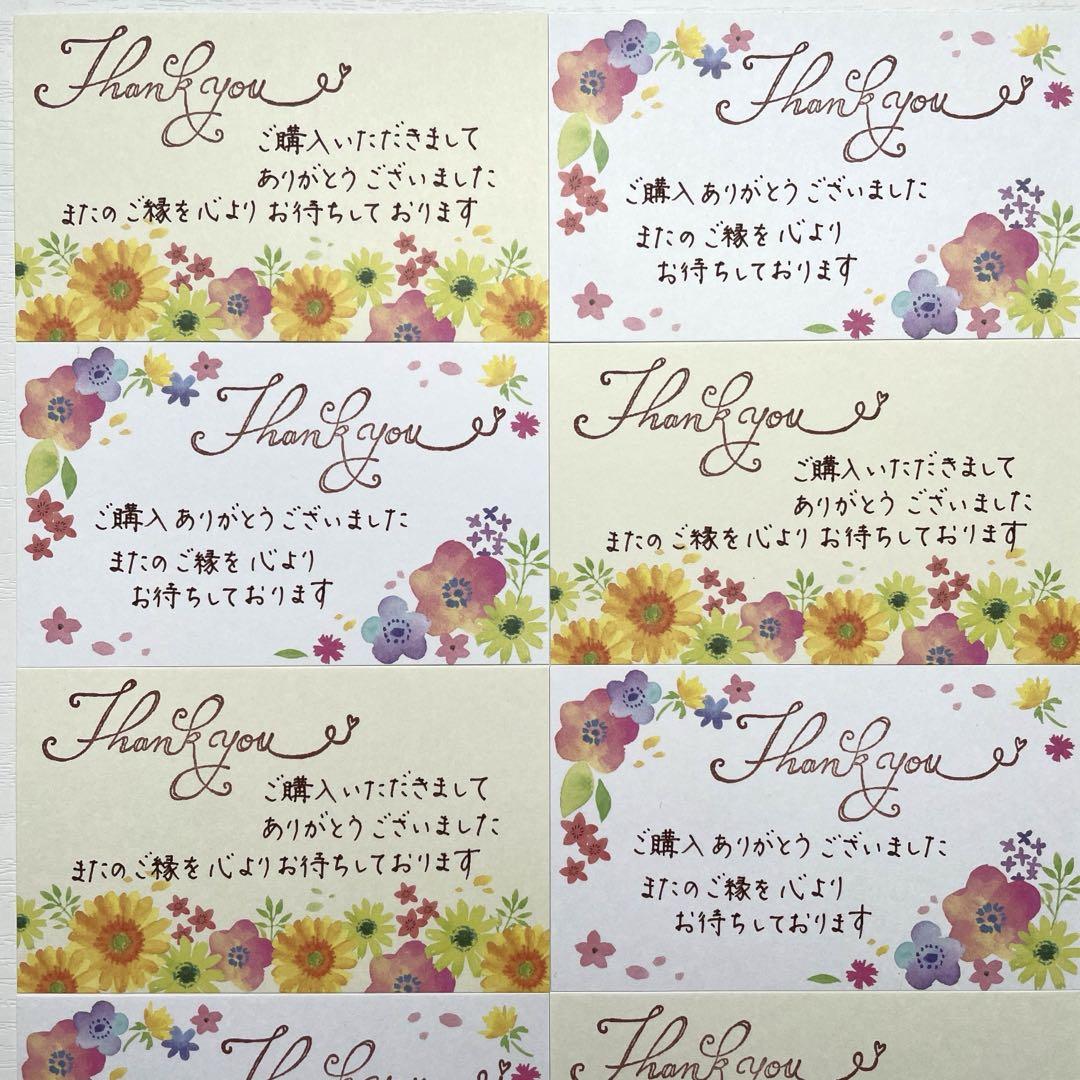 Thank you
ご購入いただきまして
ありがとうございました
またのご縁を心よりお待ちしております
Thank you
ご購入ありがとうございました
またのご縁を心より
お待ちしております
Thank you
ご購入ありがとうございました
またのご縁を心より
お待ちしております
Thank you
ご購入いただきまして
ありがとうございました
またのご縁を心よりお待ちしております
Thank you
ご購入いただきまして
ありがとうございました
またのご縁を心よりお待ちしております
Thank you
ご購入ありがとうございました
またのご縁を心より
お待ちしております
Thank you
Thank you